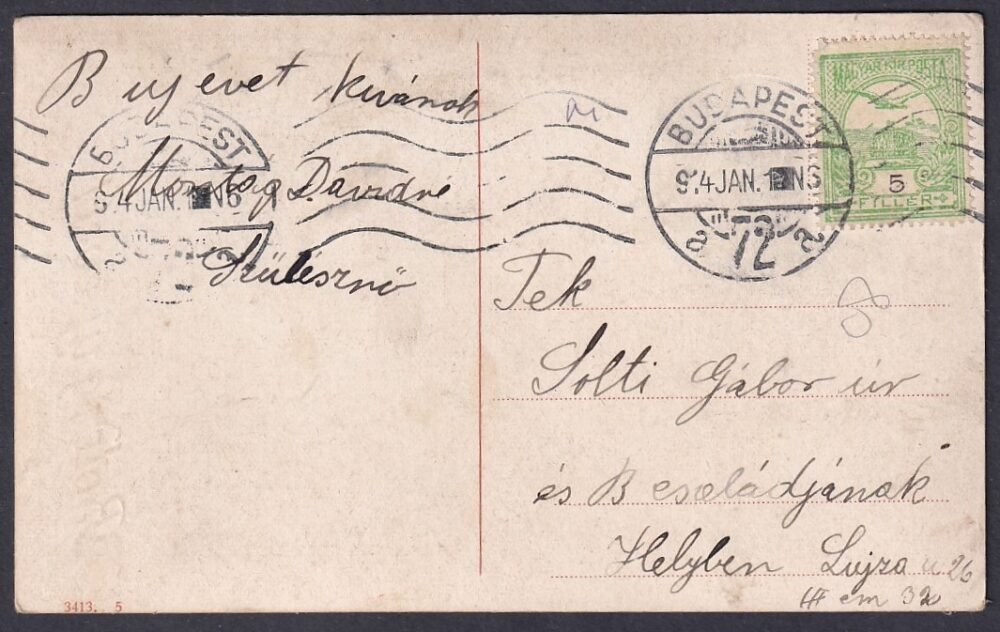 B uj evet kivánok
Montag Davidné
Szülésznő
BUDAPEST
JAN.
N6
BUDAPEST
914 JAN. 1 N6
72
MAGYAR KIR. POSTA
5
FILLÉR
Tek
Solti Gábor úr
és B családjának
Helyben Lujza u 26
III em 32
3413. 5